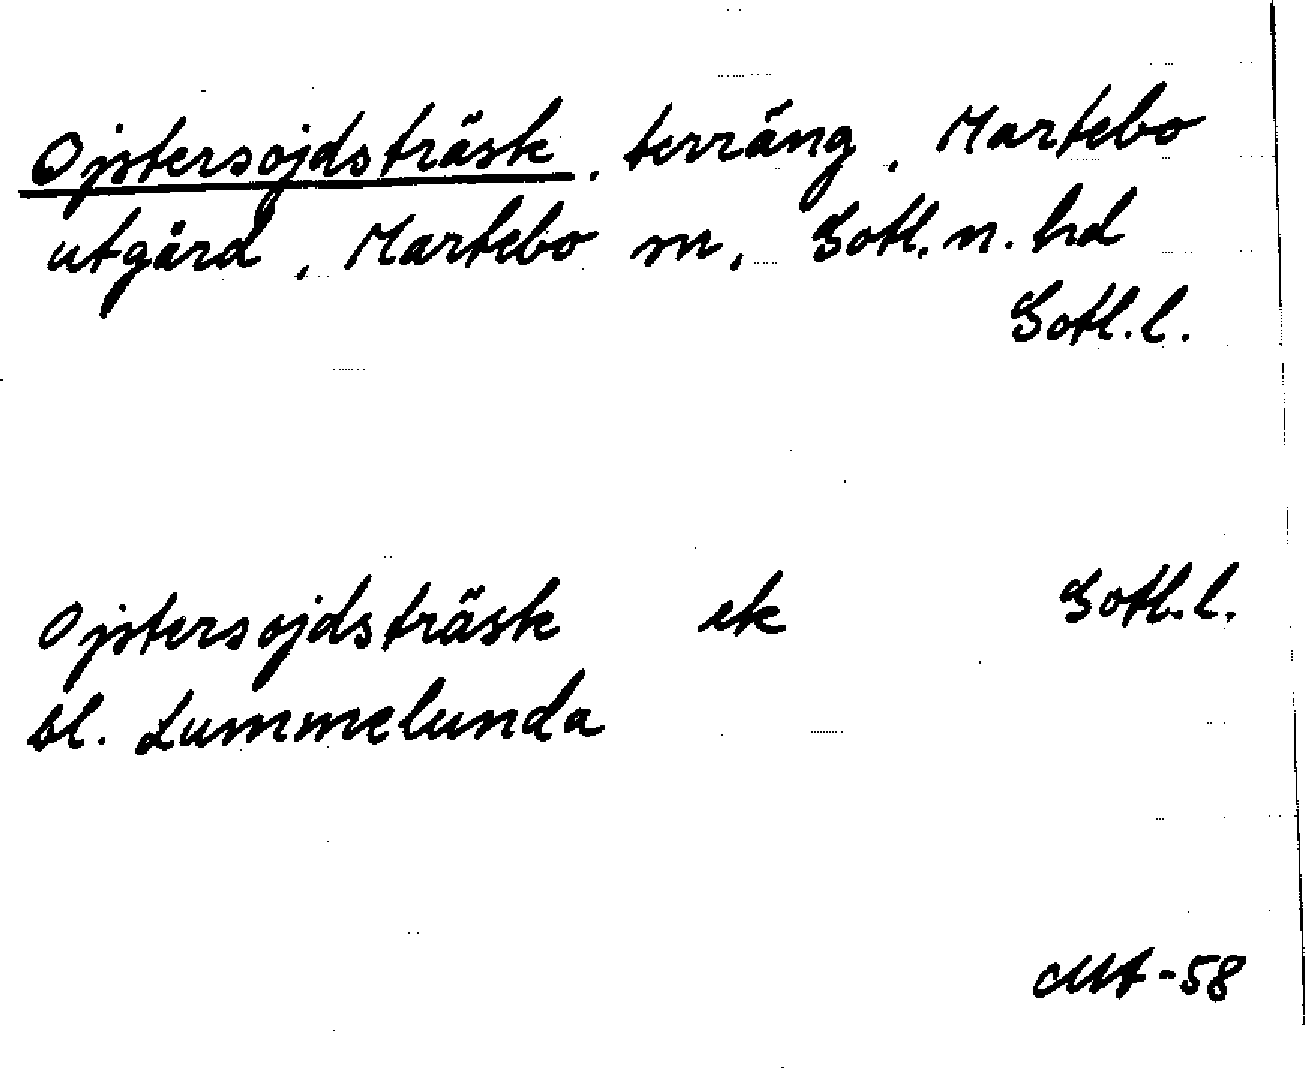 Ojstersojdsträsk, terräng, Martebo
utgård, Martebo sn, Gotl. n. hd
Gotl. l.
Ojstersojdsträsk ek Gotl. l.
bl. Lummelunda
MA-58